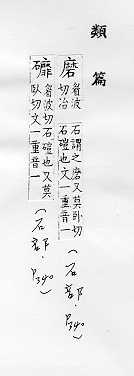 類篇
磨
眉波
切治
石謂之磨又莫卧切
石磑也文一重音一
(石部·P340)
䃺
眉波切石磑也又莫
卧切文一重音一
(石部·P340)